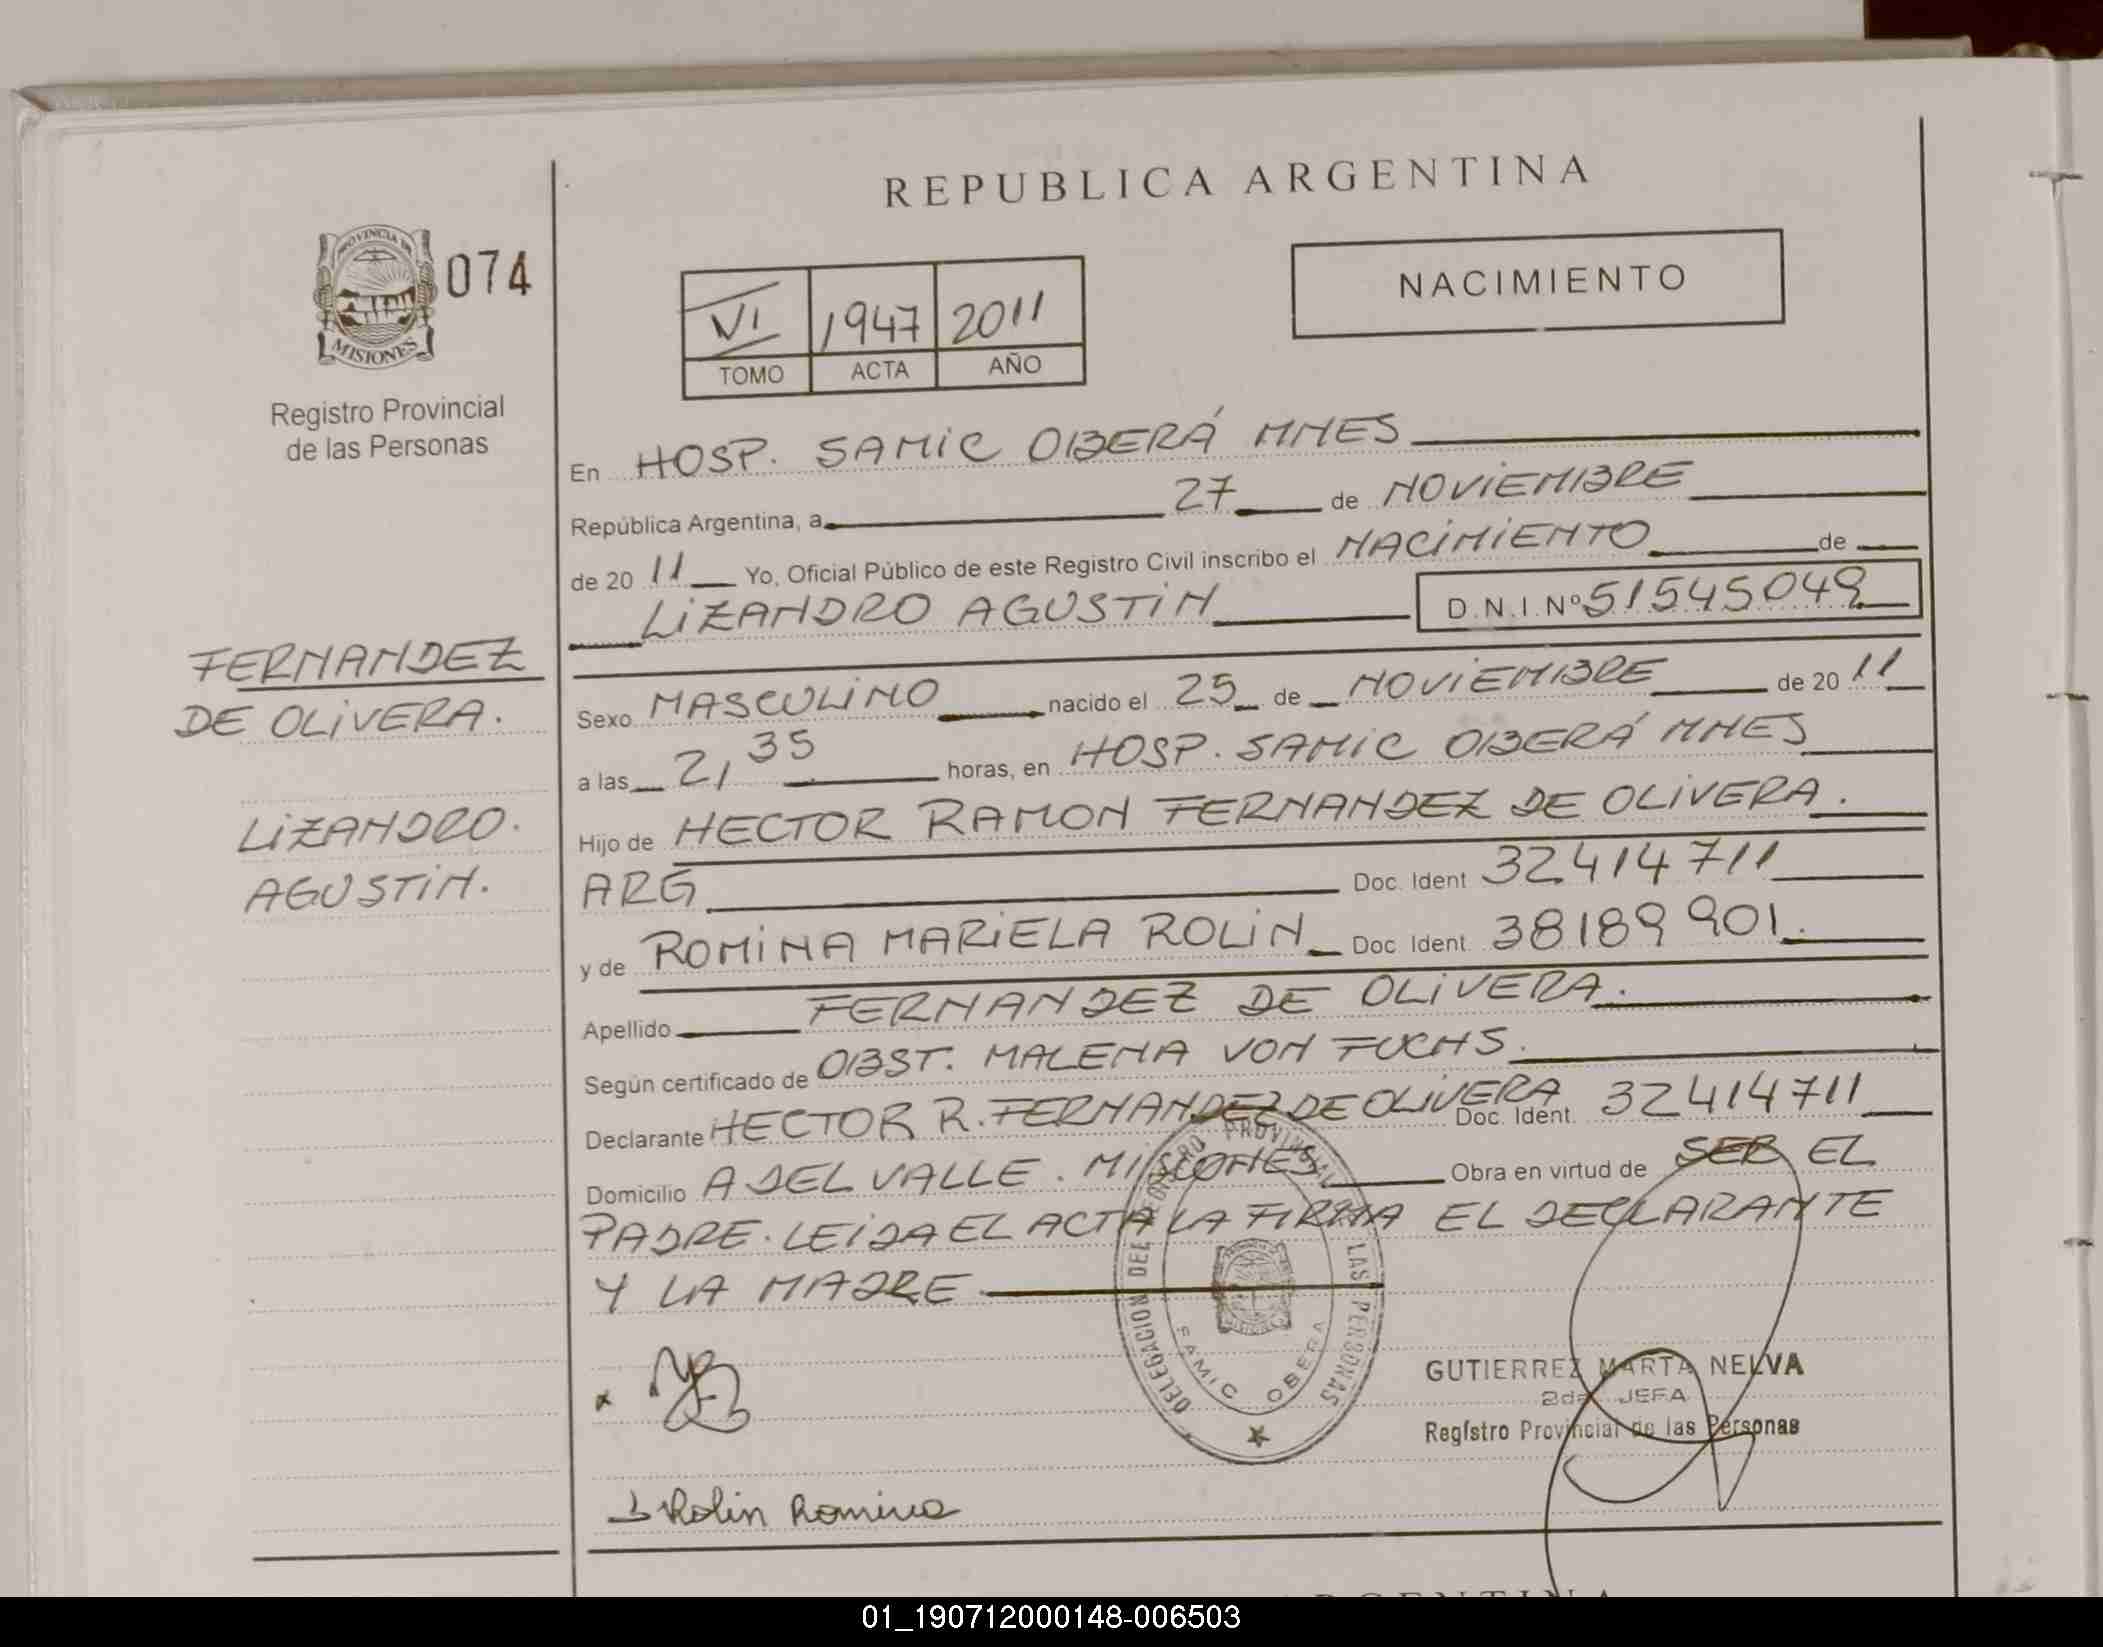 REPUBLICA ARGENTINA
PROVINCIA DE
MISIONES
074
Registro Provincial
de las Personas
VI 1947 2011
TOMO ACTA AÑO
NACIMIENTO
En HOSP. SAMIC OBERÁ MNES
República Argentina, a 27 de NOVIEMBRE
de 20 11 Yo, Oficial Público de este Registro Civil inscribo el NACIMIENTO de
LIZANDRO AGUSTIN D.N.I. Nº 51545049
FERNANDEZ
DE OLIVERA.
LIZANDRO.
AGUSTIN.
Sexo MASCULINO nacido el 25 de NOVIEMBRE de 20 11
a las 2,35 horas, en HOSP. SAMIC OBERÁ MNES
Hijo de HECTOR RAMON FERNANDEZ DE OLIVERA.
ARG Doc. Ident 32414711
y de ROMINA MARIELA ROLIN Doc. Ident. 38189901.
Apellido FERNANDEZ DE OLIVERA.
Según certificado de OBST. MALENA VON FUCHS.
Declarante HECTOR R. FERNANDEZ DE OLIVERA Doc. Ident. 32414711
Domicilio A DEL VALLE. MISIONES Obra en virtud de SER EL
PADRE. LEIDA EL ACTA LA FIRMA EL DECLARANTE
Y LA MADRE
DELEGACION DEL REGISTRO PROVINCIAL DE LAS PERSONAS
SAMIC OBERA
GUTIERREZ MARTA NELVA
2da. JEFA
Registro Provincial de las Personas
Rolin Romina
ARGENTINA
01_190712000148-006503